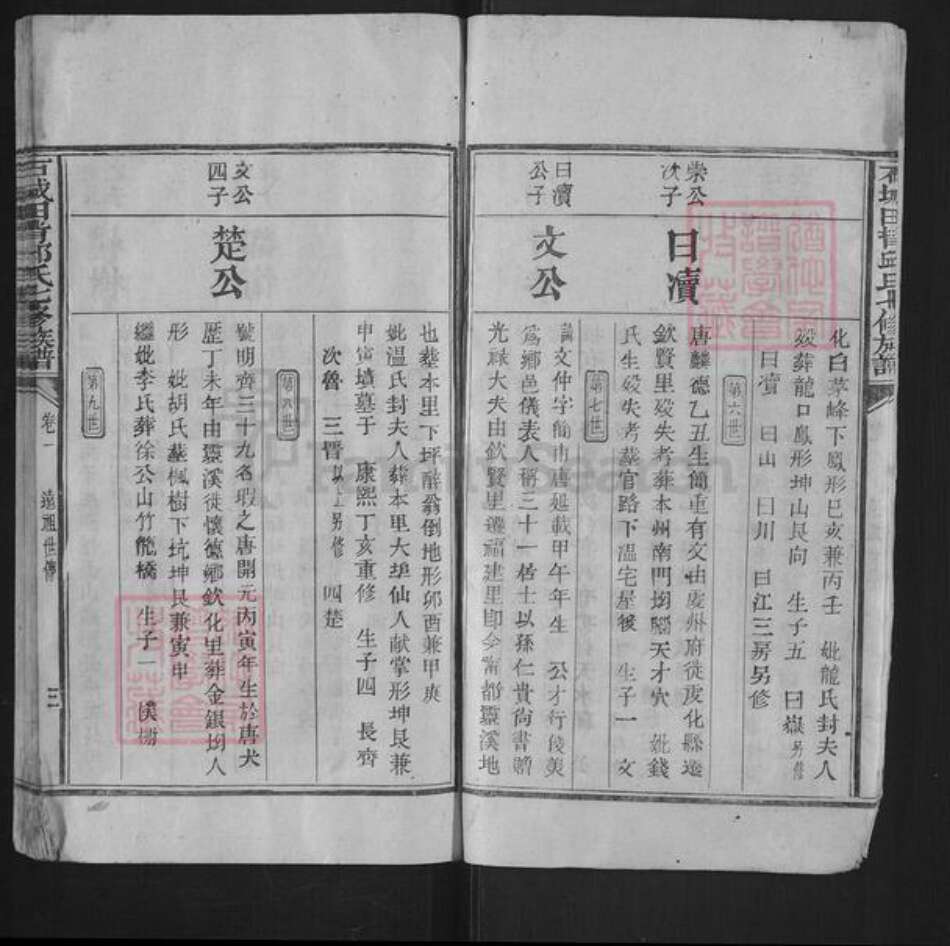 化白茅峰下鳳形巳亥兼丙壬　妣龍氏封夫人
歿葬龍口鳳形坤山艮向　生子五　曰嶽另修
曰瀆　曰山　曰川　曰江三房另修
第六世
崇公次子
曰瀆
唐麟德乙丑生簡重有文由虔州府徙虔化縣遊
欽賢里歿失考葬本州南門坳腦天才穴　妣錢
氏生歿失考葬官路下溫宅屋後　生子一　文
第七世
曰瀆公子
文公
諱文仲字簡甫唐延載甲午年生　公才行俊美
爲鄉邑儀表人稱三十一秀士以孫仁貴尚書贈
光祿大夫由欽賢里遷福建里即今甯都靈溪地
也葬本里下坪醉翁倒地形卯酉兼甲庚
妣溫氏封夫人葬本里大埠仙人献掌形坤艮兼
申寅墳墓于　康熙丁亥重修　生子四　長齊
次魯　三晉以上另修　四楚
第八世
文公四子
楚公
號明齊三十九名瑕之唐開元丙寅年生於唐大
歷丁未年由靈溪徙懷德鄉欽化里葬金銀坳人
形　妣胡氏葬楓樹下坑坤艮兼寅申
繼妣李氏葬徐公山竹篙橋　生子一
第九世
石城田背邱氏七修族譜
卷一
遠祖世傳
三